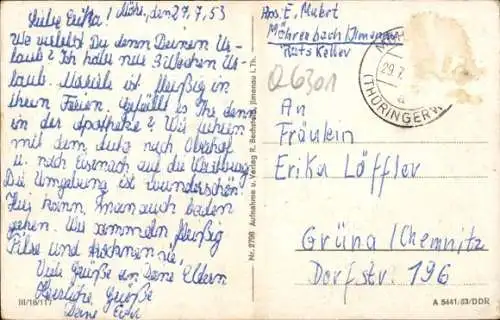 Liebe Erika! Möhre, den 27.7.53
Wo verlebst Du denn Deinen Ur-
laub? Ich habe nur 3 Wochen Ur-
laub. Michele ist fleißig in
ihren Ferien. Gefällt es Ihr denn
in der Apotheke? Wir fuhren
mit dem Auto nach Oberhof
u. nach Eisenach auf die Wartburg
Die Umgebung ist wunderschön.
Hier kann man auch baden
gehen. Wir sammeln fleißig
Pilse und trocknen sie.
Viele Grüße an Deine Eltern
Herzliche Grüße
Deine
III/18/117
Nr. 2796 Aufnahme u. Verlag R. Bechstein, Jlmenau i. Th.
Abs. E. Muhrt
Möhrenbach/Jlmenau
Ratskeller
Q6301
29.7.
(THÜRINGERW
a
An
Fräulein
Erika Löffler
Grüna/Chemnitz
Dorfstr. 196
A 5441/53/DDR